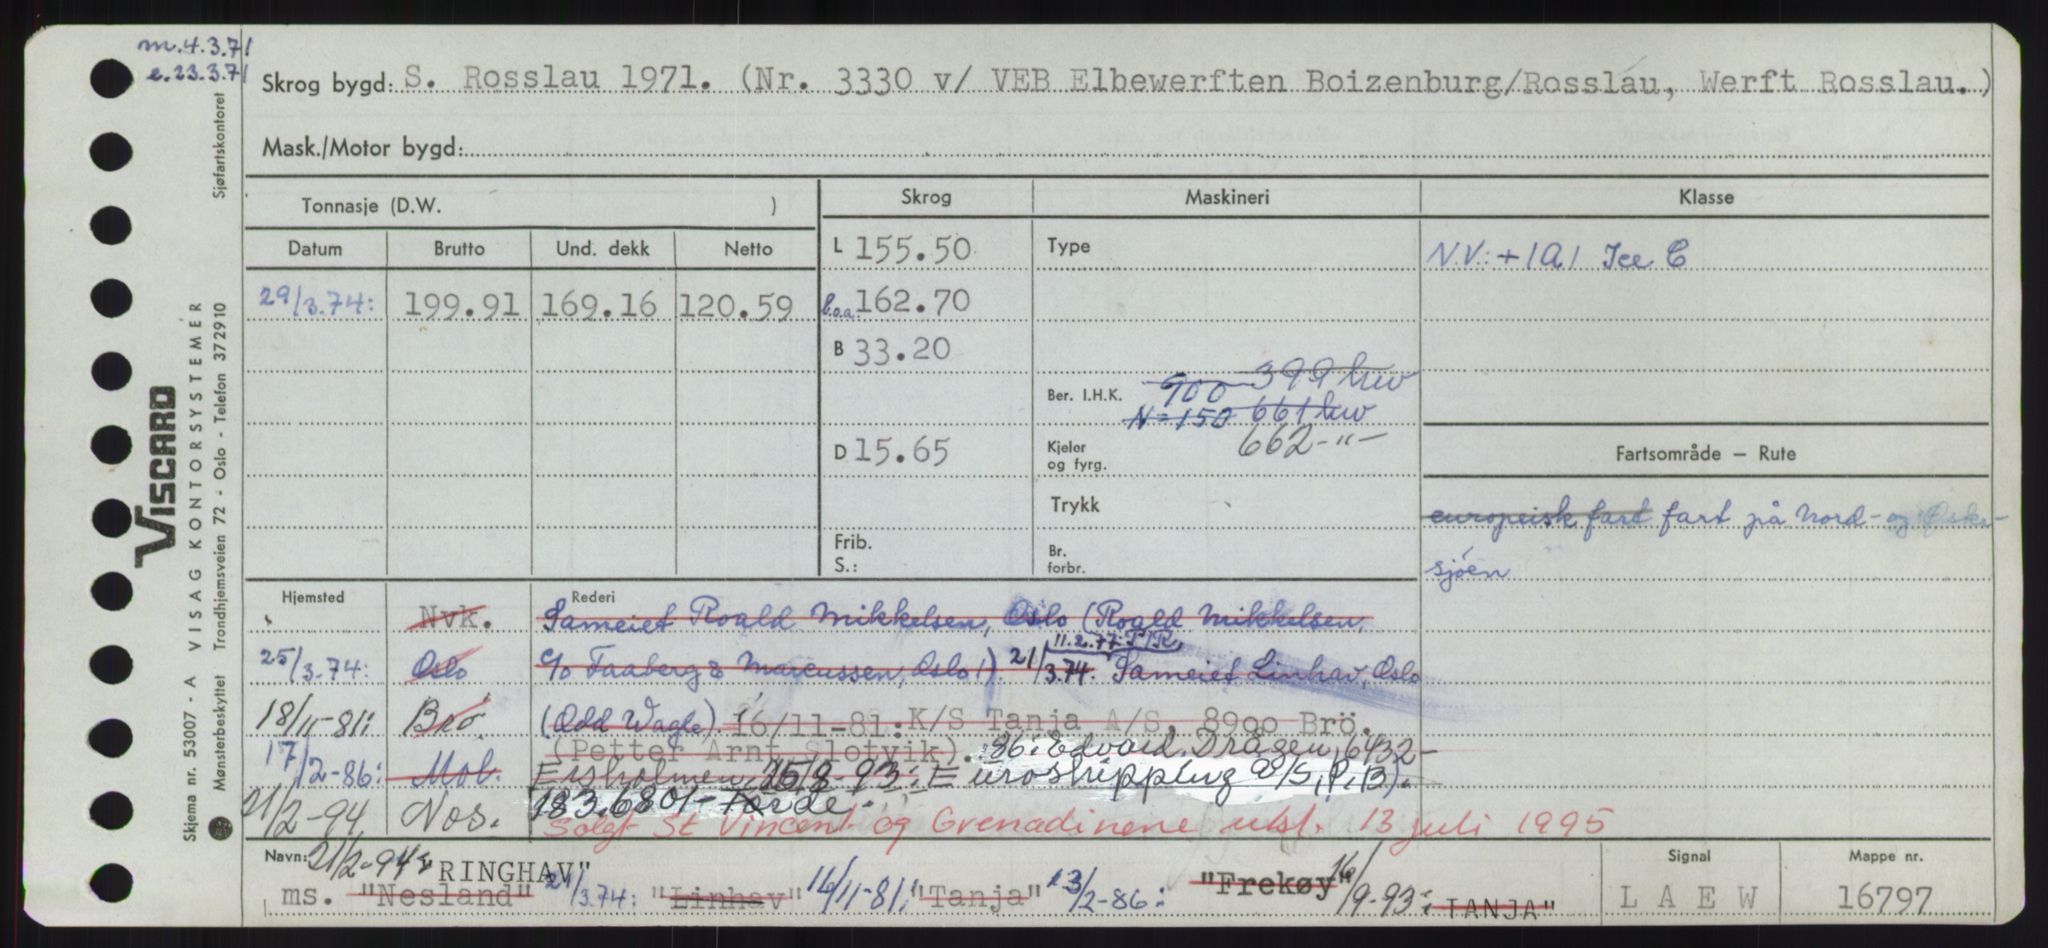 m.4.3.71
e.23.3.71
Skrog bygd: S. Rosslau 1971. (Nr. 3330 v/ VEB Elbewerften Boizenburg/Rosslau, Werft Rosslau.)
Mask./Motor bygd:
Tonnasje (D.W. )
Skrog Maskineri Klasse
Datum Brutto Und. dekk Netto
L 155.50 Type N.V.: +1A1 Ice C
29/3.74: 199.91 169.16 120.59 l.o.a. 162.70
B 33.20
399 kw
Ber. I.H.K. 900
N=150 661 kw
D 15.65 Kjeler og fyrg. 662 -"-
Fartsområde – Rute
Trykk europeisk fart fart på Nord- og Østersjøen
Frib.
S.:
Br. forbr.
Hjemsted Rederi
Nvk. Sameiet Roald Mikkelsen, Oslo (Roald Mikkelsen,
11.2.77: PIR
25/3.74: Oslo c/o Faaberg & Marcussen, Oslo 1). 21/3.74. Sameiet Linhav, Oslo
18/11-81: Brö. (Odd Wagle). 16/11-81: K/S Tanja A/S, 8900 Brö.
(Petter Arnt Slotvik). 86: Edvard Drågen, 6432-
17/2-86: Mol. 15/8-93: Euroshipping A/S, P.B).
21/2-94 Nos. 183.680/-
Solgt St Vincent og Grenadinene utsl. 13 juli 1995
Navn: 21/2-94: "RINGHAV"
ms. "Nesland" 21/3.74: "Linhav" 16/11-81: "Tanja" 13/2-86: "Frekøy" 16/9-93: TANJA"
Signal
L A E W
Mappe nr.
16797
Sjøfartskontoret
VISCARD
VISAG KONTORSYSTEMER
Trondhjemsveien 72 - Oslo - Telefon 372910
Skjema nr. 53007 - A
Mønsterbeskyttet